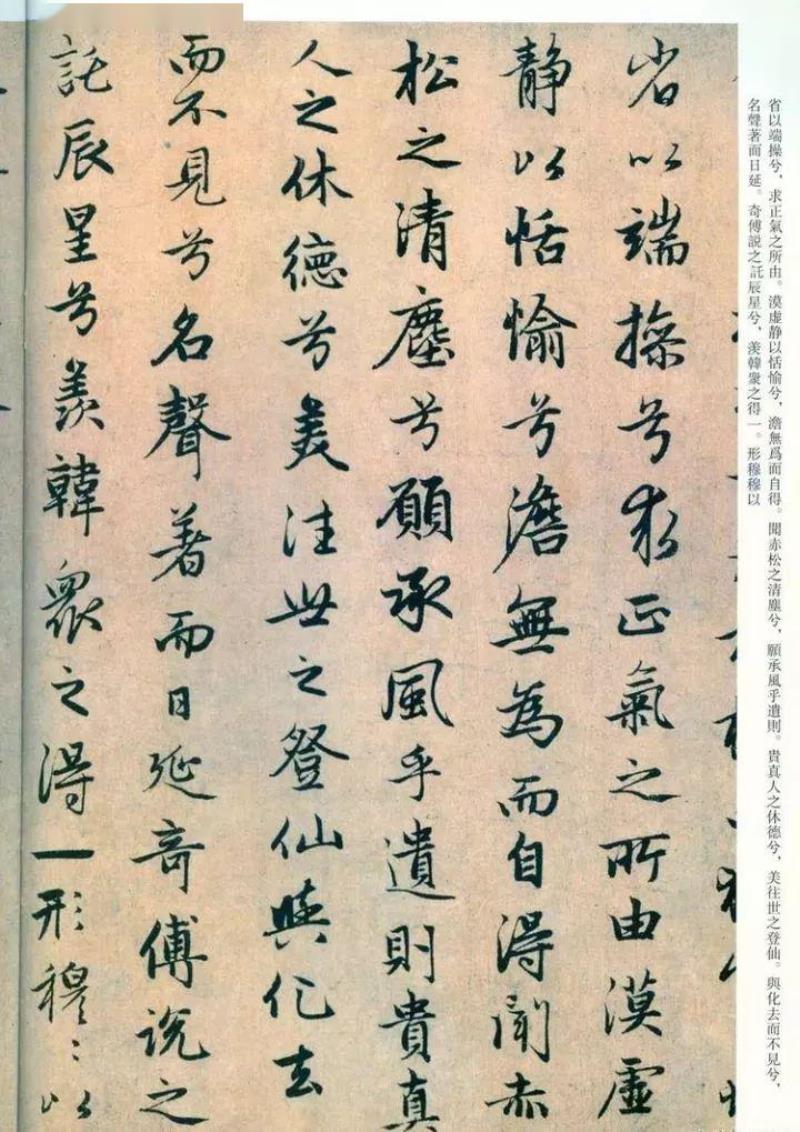 省以端操兮，求正氣之所由。漠虛静以恬愉兮，澹無爲而自得。聞赤松之清塵兮，願承風乎遺則。貴真人之休德兮，美往世之登仙。與化去而不見兮，
名聲著而日延。奇傅説之託辰星兮，羨韓衆之得一。形穆穆以
省以端操兮求正氣之所由漠虛
静以恬愉兮澹無為而自得聞赤
松之清塵兮願承風乎遺則貴真
人之休德兮美往世之登仙與化去
而不見兮名聲著而日延奇傅説之
託辰星兮羨韓眾之得一形穆〻以